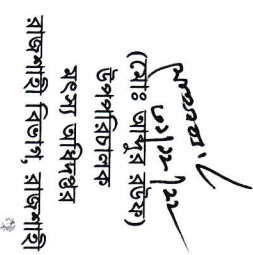 (মোঃ আব্দুর রউফ)
উপপরিচালক
মৎস্য অধিদপ্তর
রাজশাহী বিভাগ, রাজশাহী